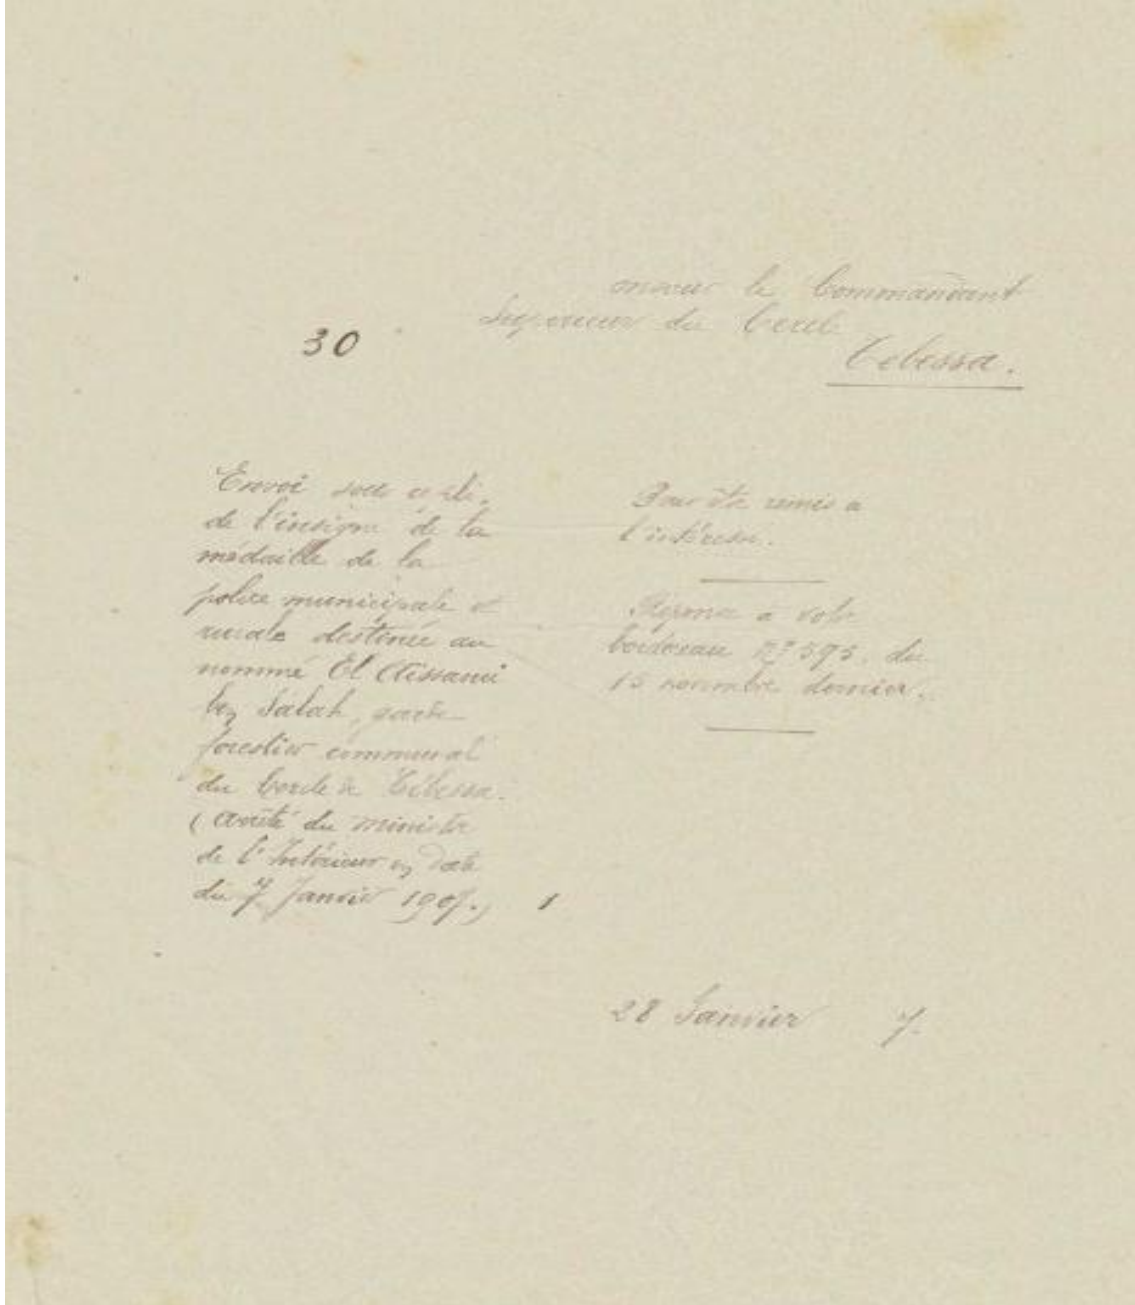 onsieur le Commandant
Superieur du Cercle
Tebessa.
30
Envoi sous ce pli,
de l'insigne de la
médaille de la
police municipale et
rurale destinée au
nommé El Aissani
ben Salah, garde
forestier communal
du Cercle de Tébessa.
(arrêté du ministre
de l'Intérieur en date
du 7 Janvier 1907.) 1
Pour être remis a
l'intéressé.
Réponse à votre
bordereau n° 595. du
15 novembre dernier.
28 Janvier 7.